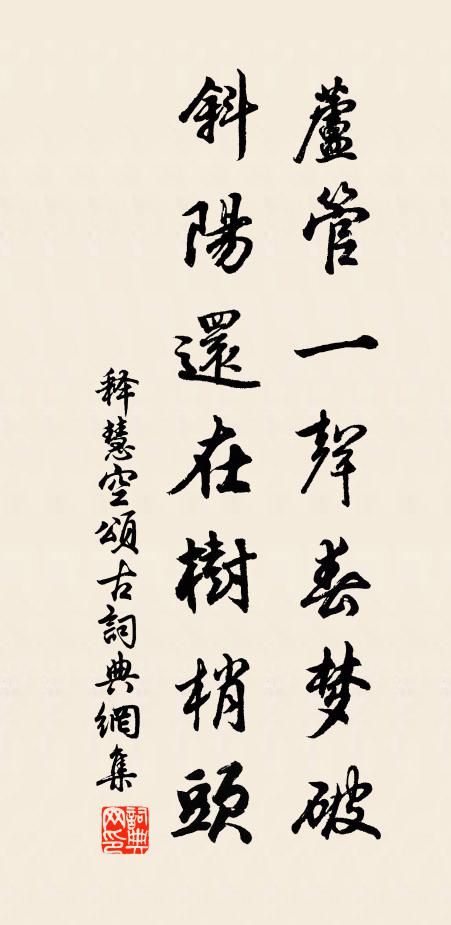 蘆管一聲春梦破
斜陽還在樹梢頭
释慧空頌古詞典網集
詞典网印